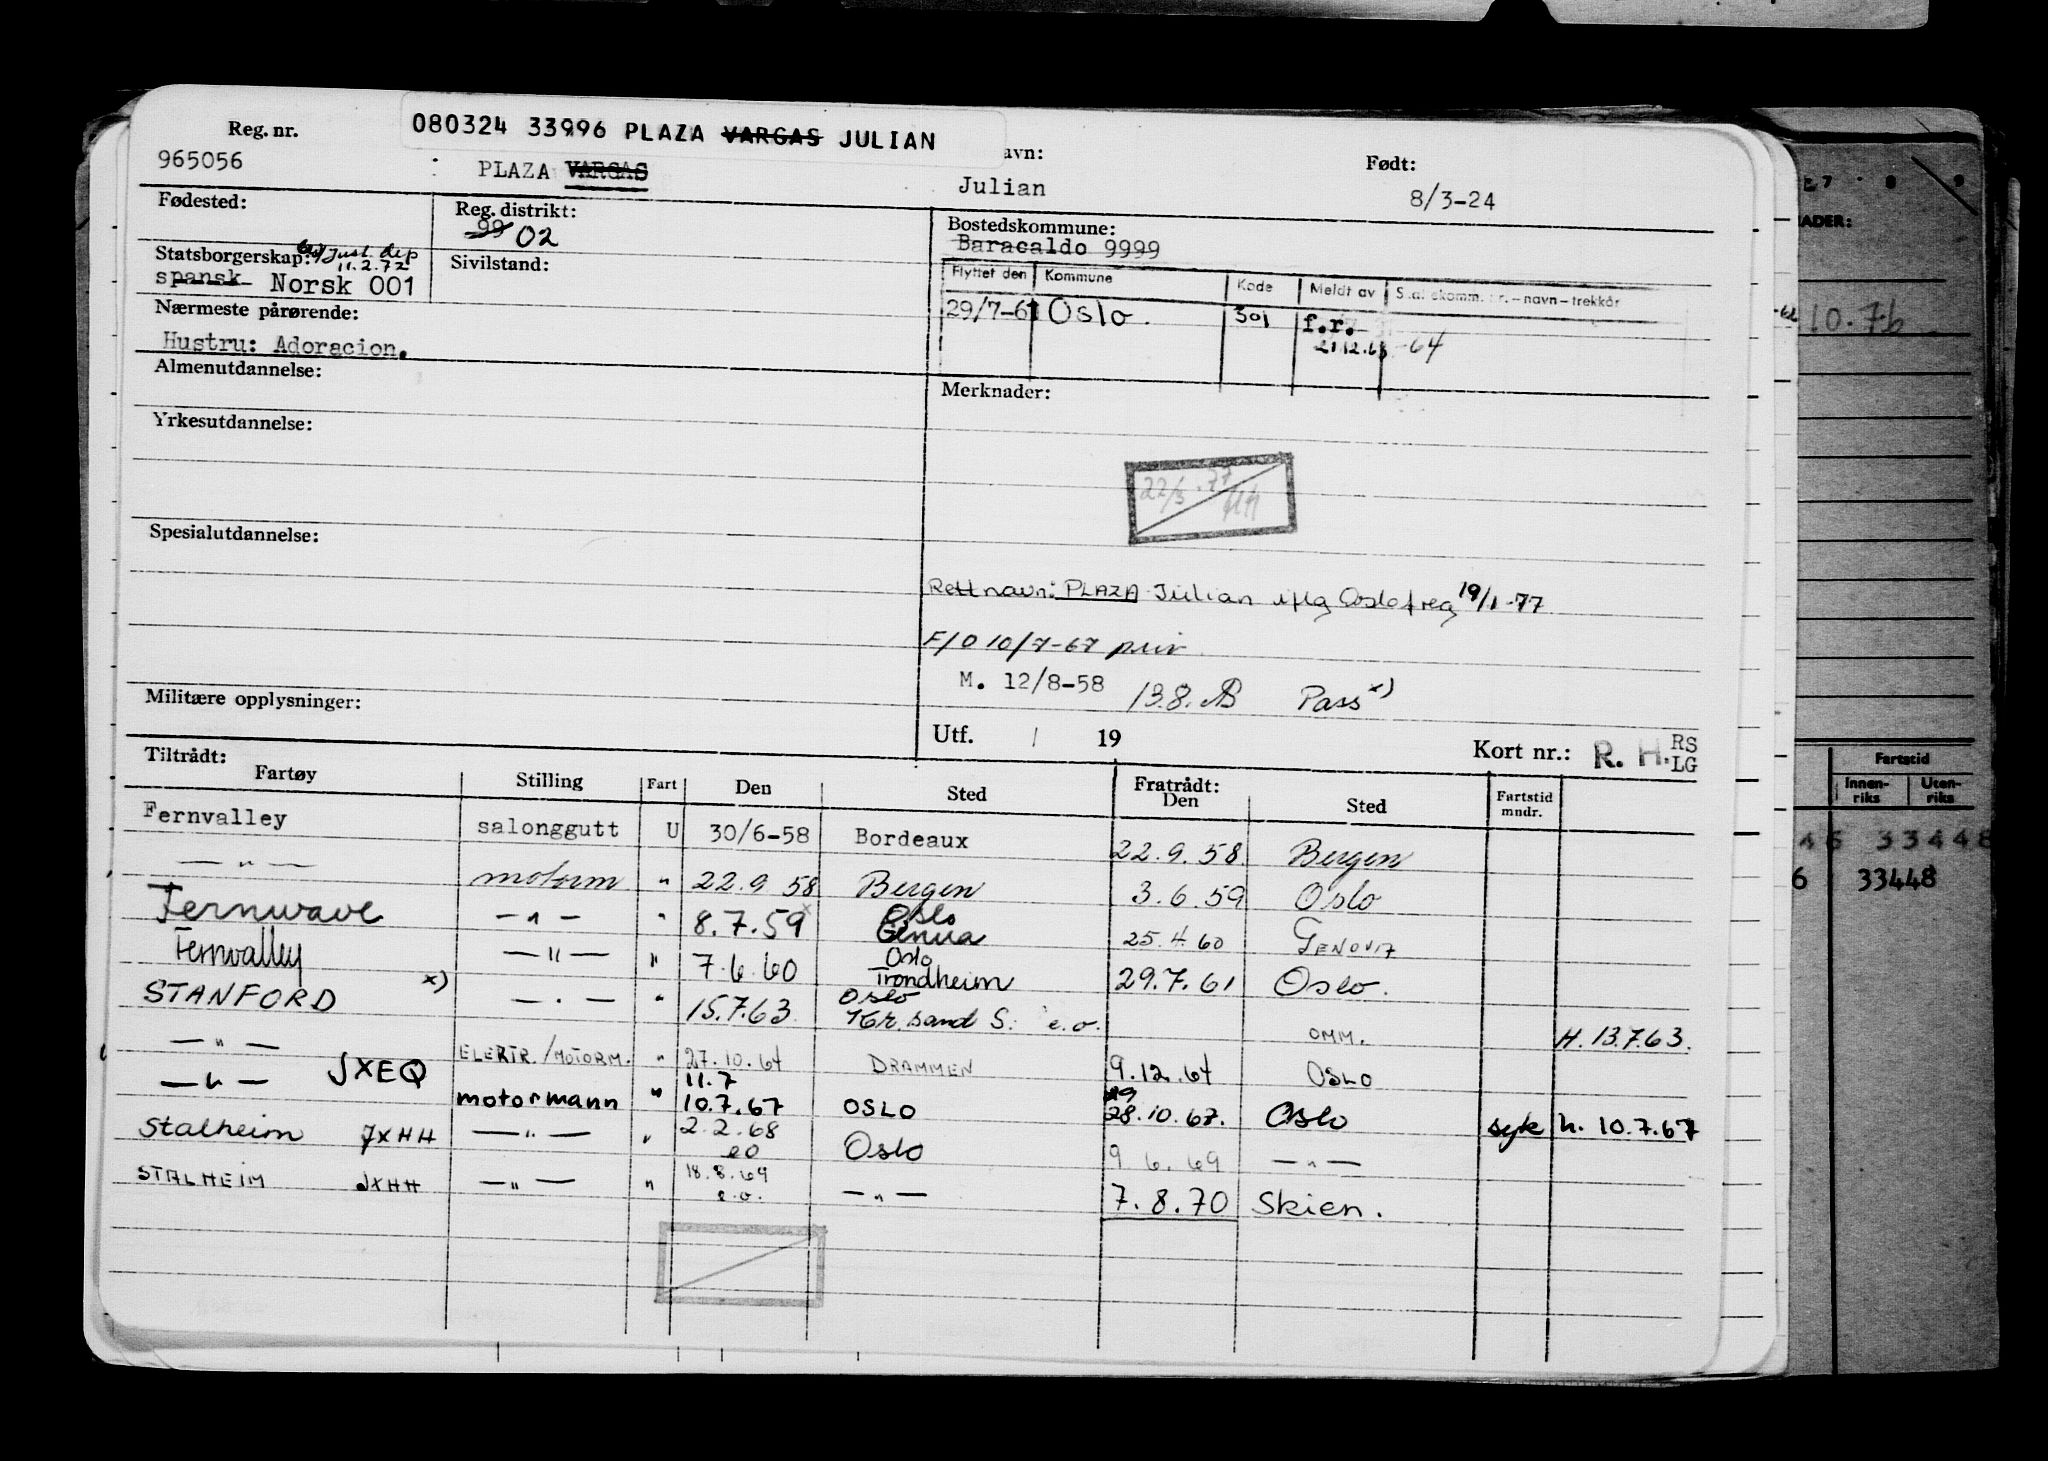 080324 33996 PLAZA VARGAS JULIAN
Reg. nr. avn: Født:
965056 PLAZA VARGAS Julian 8/3-24
Fødested: Reg. distrikt: Bostedskommune:
99 02 Baracaldo 9999
Statsborgerskap: Just. dep 11.2.72 Sivilstand:
spansk Norsk 001
Flyttet den Kommune Kode Meldt av
29/7-61 Oslo. 301 f.r.
21.12.63 -64
Nærmeste pårørende:
Hustru: Adoracion.
Almenutdannelse: Merknader:
Yrkesutdannelse:
22/3.77
Spesialutdannelse:
Rett navn: PLAZA Julian iflg Oslo freg 19/1-77
F/O 10/7-67 priv
M. 12/8-58 13.8. AB Pass x)
Militære opplysninger:
Utf. / 19 Kort nr.: R. H. RS LG
Tiltrådt: Fratrådt:
Fartøy Stilling Fart Den Sted Den Sted Fartstid mndr.
Fernvalley salonggutt U 30/6-58 Bordeaux 22.9.58. Bergen
— " — motorm " 22.9 58 Bergen 3.6.59 Oslo
Fernwave — " — " 8.7.59 x Oslo Genua 25.4.60 GENOVA
Fernvalley — " — " 7.6.60 Oslo Trondheim 29.7.61 Oslo.
STANFORD x) — " — " 15.7.63 Oslo Kr. sand S. e.o. OMM. H. 13.7.63.
— " — ELEKTR./MOTORM. " 27.10.64 DRAMMEN 9.12.64 OSLO
— " — JXEQ motormann " 11.7 10.7.67 OSLO 29 28.10.67. Oslo syk h. 10.7.67
Stalheim JXHH — " — " 2.2.68 eo Oslo 9 6.69 — " —
STALHEIM JXHH — " — " 18.8.69 e.o. — " — 7.8.70 Skien.
ADER:
10.76
Fartstid
Innen-riks Uten-riks
33448
6 33448